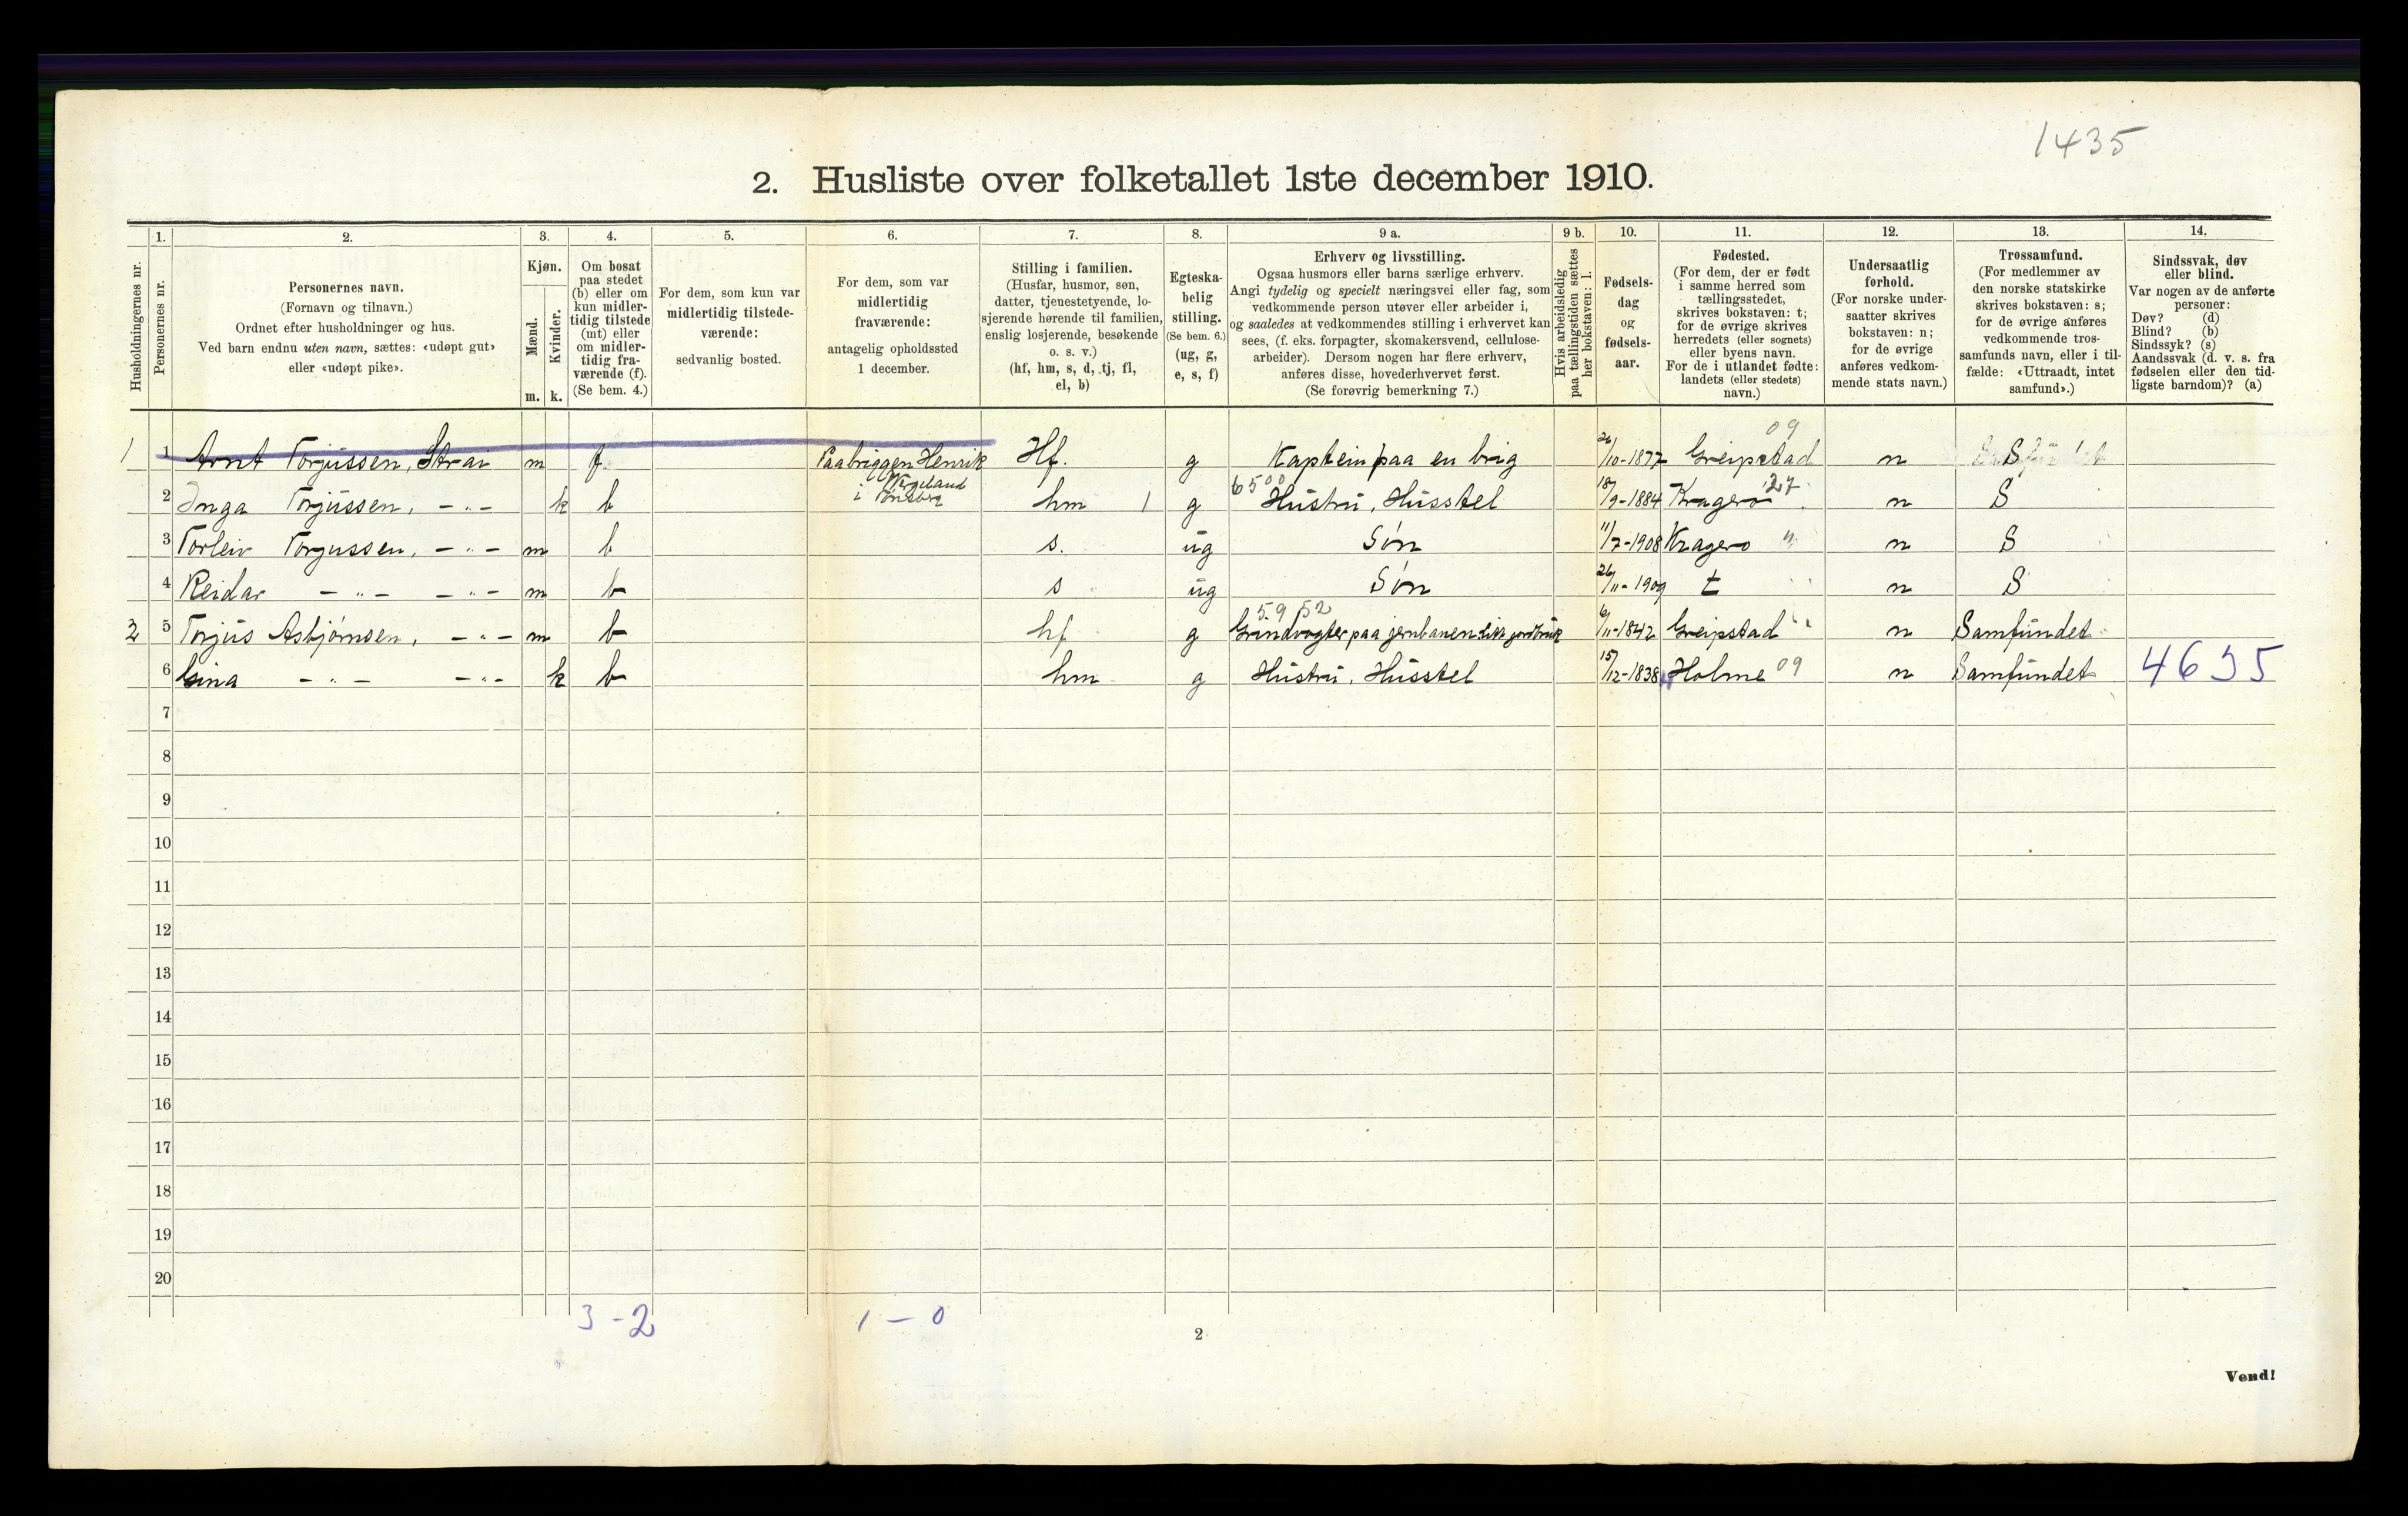 1435
2. Husliste over folketallet 1ste december 1910.
Husholdningernes nr.
1.
Personernes nr.
2.
Personernes navn.
(Fornavn og tilnavn.)
Ordnet efter husholdninger og hus.
Ved barn endnu uten navn, sættes: «udøpt gut»
eller «udøpt pike».
3.
Kjøn.
Mænd.
Kvinder.
m. k.
4.
Om bosat
paa stedet
(b) eller om
kun midler-
tidig tilstede
(mt) eller
om midler-
tidig fra-
værende (f).
(Se bem. 4.)
5.
For dem, som kun var
midlertidig tilstede-
værende:
sedvanlig bosted.
6.
For dem, som var
midlertidig
fraværende:
antagelig opholdssted
1 december.
7.
Stilling i familien.
(Husfar, husmor, søn,
datter, tjenestetyende, lo-
sjerende hørende til familien,
enslig losjerende, besøkende
o. s. v.)
(hf, hm, s, d, tj, fl,
el, b)
8.
Egteska-
belig
stilling.
(Se bem. 6.)
(ug, g,
e, s, f)
9 a.
Erhverv og livsstilling.
Ogsaa husmors eller barns særlige erhverv.
Angi tydelig og specielt næringsvei eller fag, som
vedkommende person utøver eller arbeider i,
og saaledes at vedkommendes stilling i erhvervet kan
sees, (f. eks. forpagter, skomakersvend, cellulose-
arbeider). Dersom nogen har flere erhverv,
anføres disse, hovederhvervet først.
(Se forøvrig bemerkning 7.)
9 b.
Hvis arbeidsledig
paa tællingstiden sættes
her bokstaven: l.
10.
Fødsels-
dag
og
fødsels-
aar.
11.
Fødested.
(For dem, der er født
i samme herred som
tællingsstedet,
skrives bokstaven: t;
for de øvrige skrives
herredets (eller sognets)
eller byens navn.
For de i utlandet fødte:
landets (eller stedets)
navn.)
12.
Undersaatlig
forhold.
(For norske under-
saatter skrives
bokstaven: n;
for de øvrige
anføres vedkom-
mende stats navn.)
13.
Trossamfund.
(For medlemmer av
den norske statskirke
skrives bokstaven: s;
for de øvrige anføres
vedkommende tros-
samfunds navn, eller i til-
fælde: «Uttraadt, intet
samfund».)
14.
Sindssvak, døv
eller blind.
Var nogen av de anførte
personer:
Døv? (d)
Blind? (b)
Sindssyk? (s)
Aandssvak (d. v. s. fra
fødselen eller den tid-
ligste barndom)? (a)
09
1 1 Arnt Torjussen, Strai m f. Paa briggen Henrik Hf. g Kaptein paa en brig 26/10-1877 Greipstad n S
Wergeland
i Tønsberg
6500
27
2 Inga Torjussen, - " - k b hm 1 g Hustru, Husstel 18/9-1884 Kragerø n S
3 Torleiv Torgussen, - " - m b s. ug Søn 11/7-1908 Kragerø " n S
4 Reidar - " - - " - m b s ug Søn 26/11-1909 t n S
59 52
2 5 Torjus Asbjørnsen, - " - m b hf g Grindvogter paa jernbanen litt jordbruk 6/11-1842 Greipstad n Samfundet
6 Gina - " - - " - k b hm g Hustru, Husstel 15/12-1838 Holme 09 n Samfundet 4635
7
8
9
10
11
12
13
14
15
16
17
18
19
20
3 - 2 1 - 0
2
Vend!